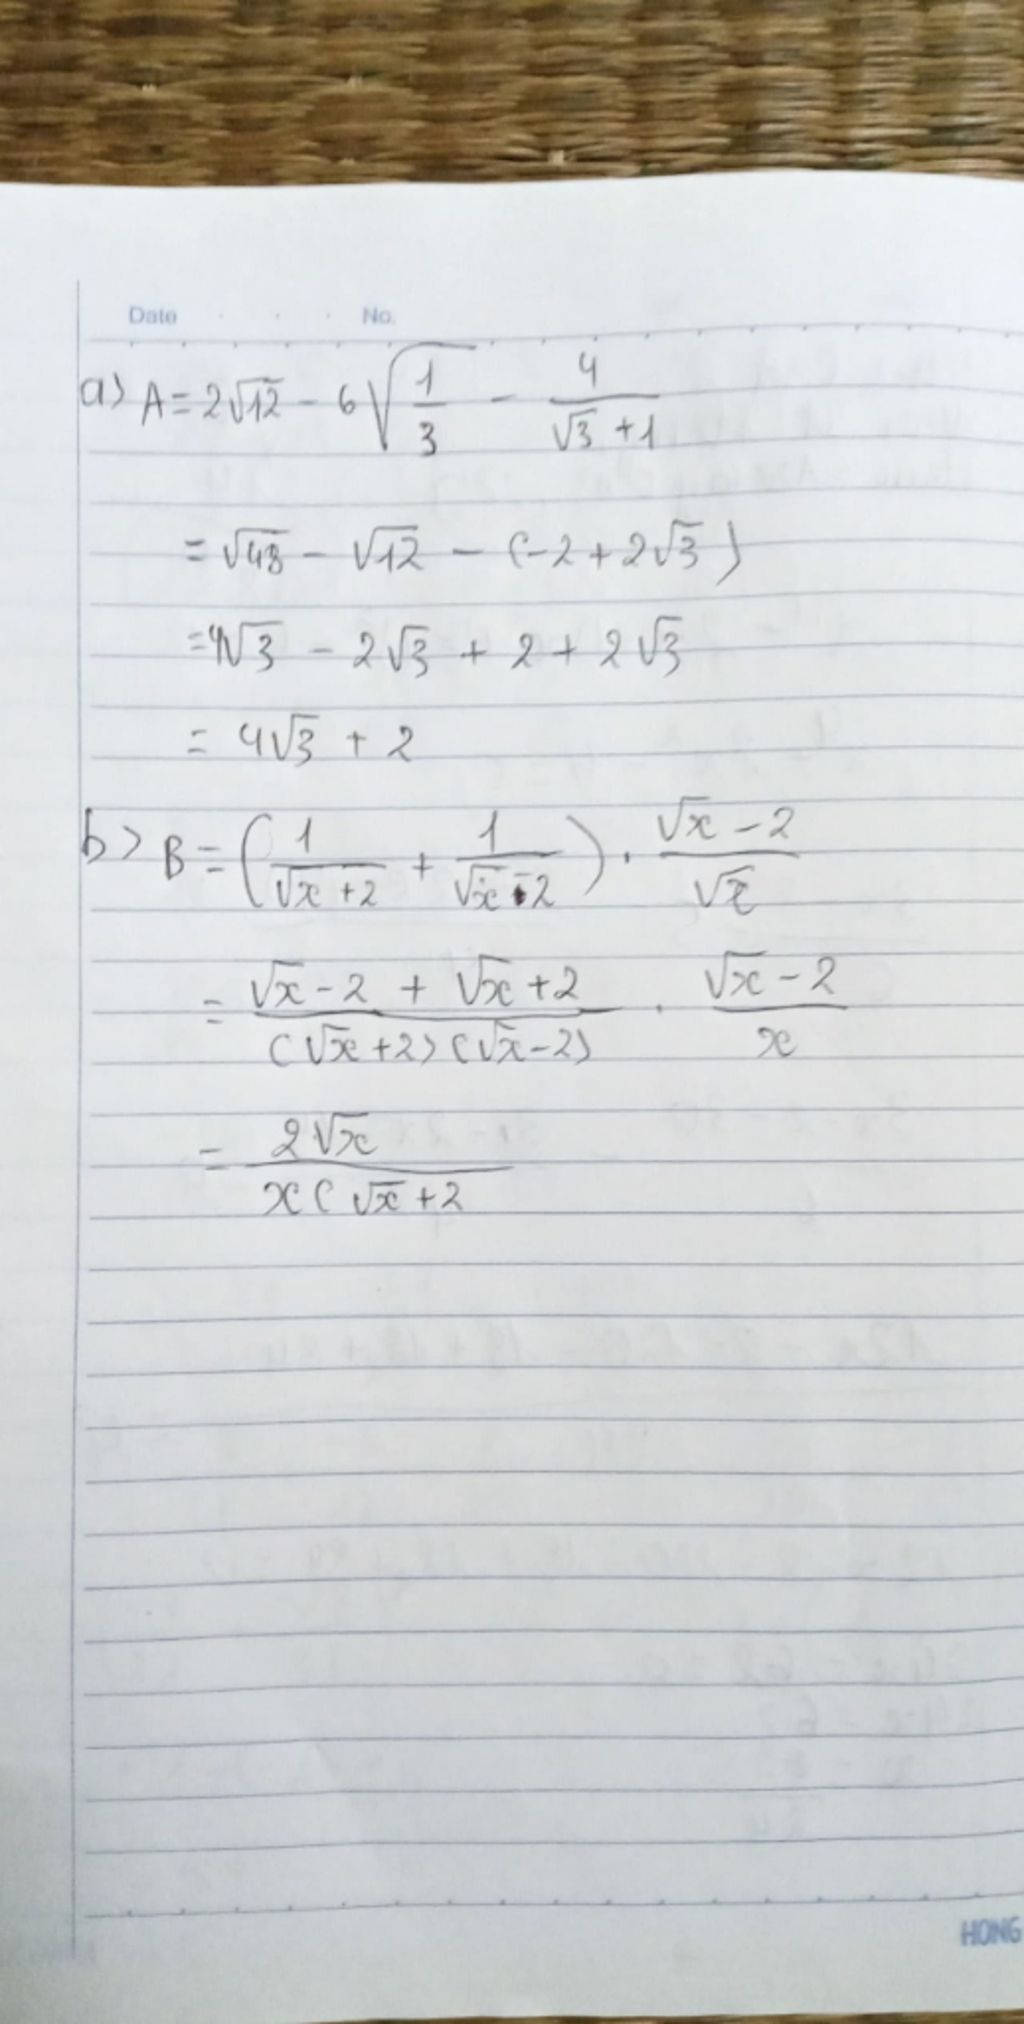 Date No.
a) A = 2√12 - 6√(1/3) - 4/(√3 + 1)
= √48 - √12 - (-2 + 2√3)
= 4√3 - 2√3 + 2 + 2√3
= 4√3 + 2
b) B = (1/(√x + 2) + 1/(√x - 2)) . (√x - 2)/√x
= (√x - 2 + √x + 2)/((√x + 2)(√x - 2)) . (√x - 2)/x
= 2√x/(x(√x + 2
HONG